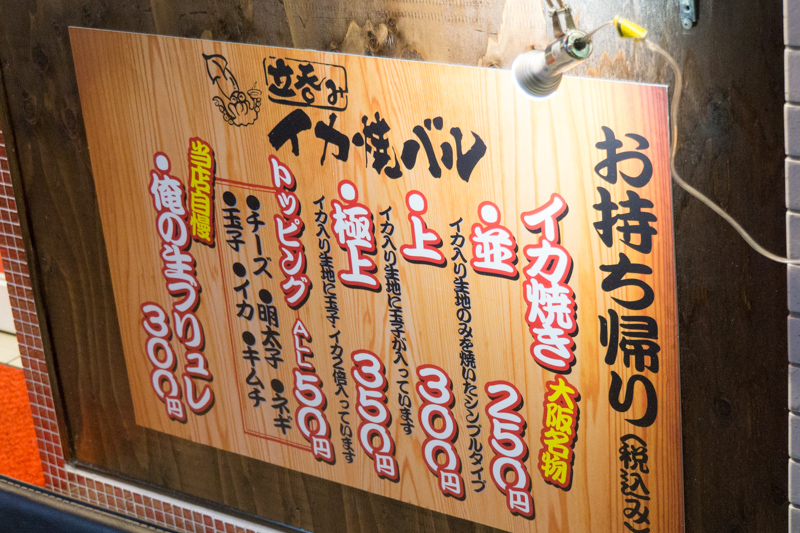 お持ち帰り(税込み)
イカ焼き 大阪名物
・並 250円
イカ入り生地のみを焼いたシンプルタイプ
・上 300円
イカ入り生地に玉子が入っています
・極上 350円
イカ入り生地に玉子・イカ2倍入っています
トッピング ALL50円
●チーズ ●明太子 ●ネギ
●玉子 ●イカ ●キムチ
当店自慢
・俺の生ブリュレ 300円
立呑み
イカ焼バル